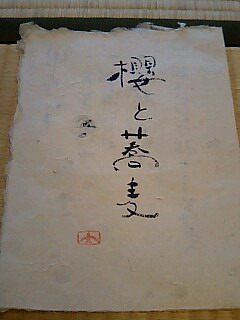 櫻と蕎麦